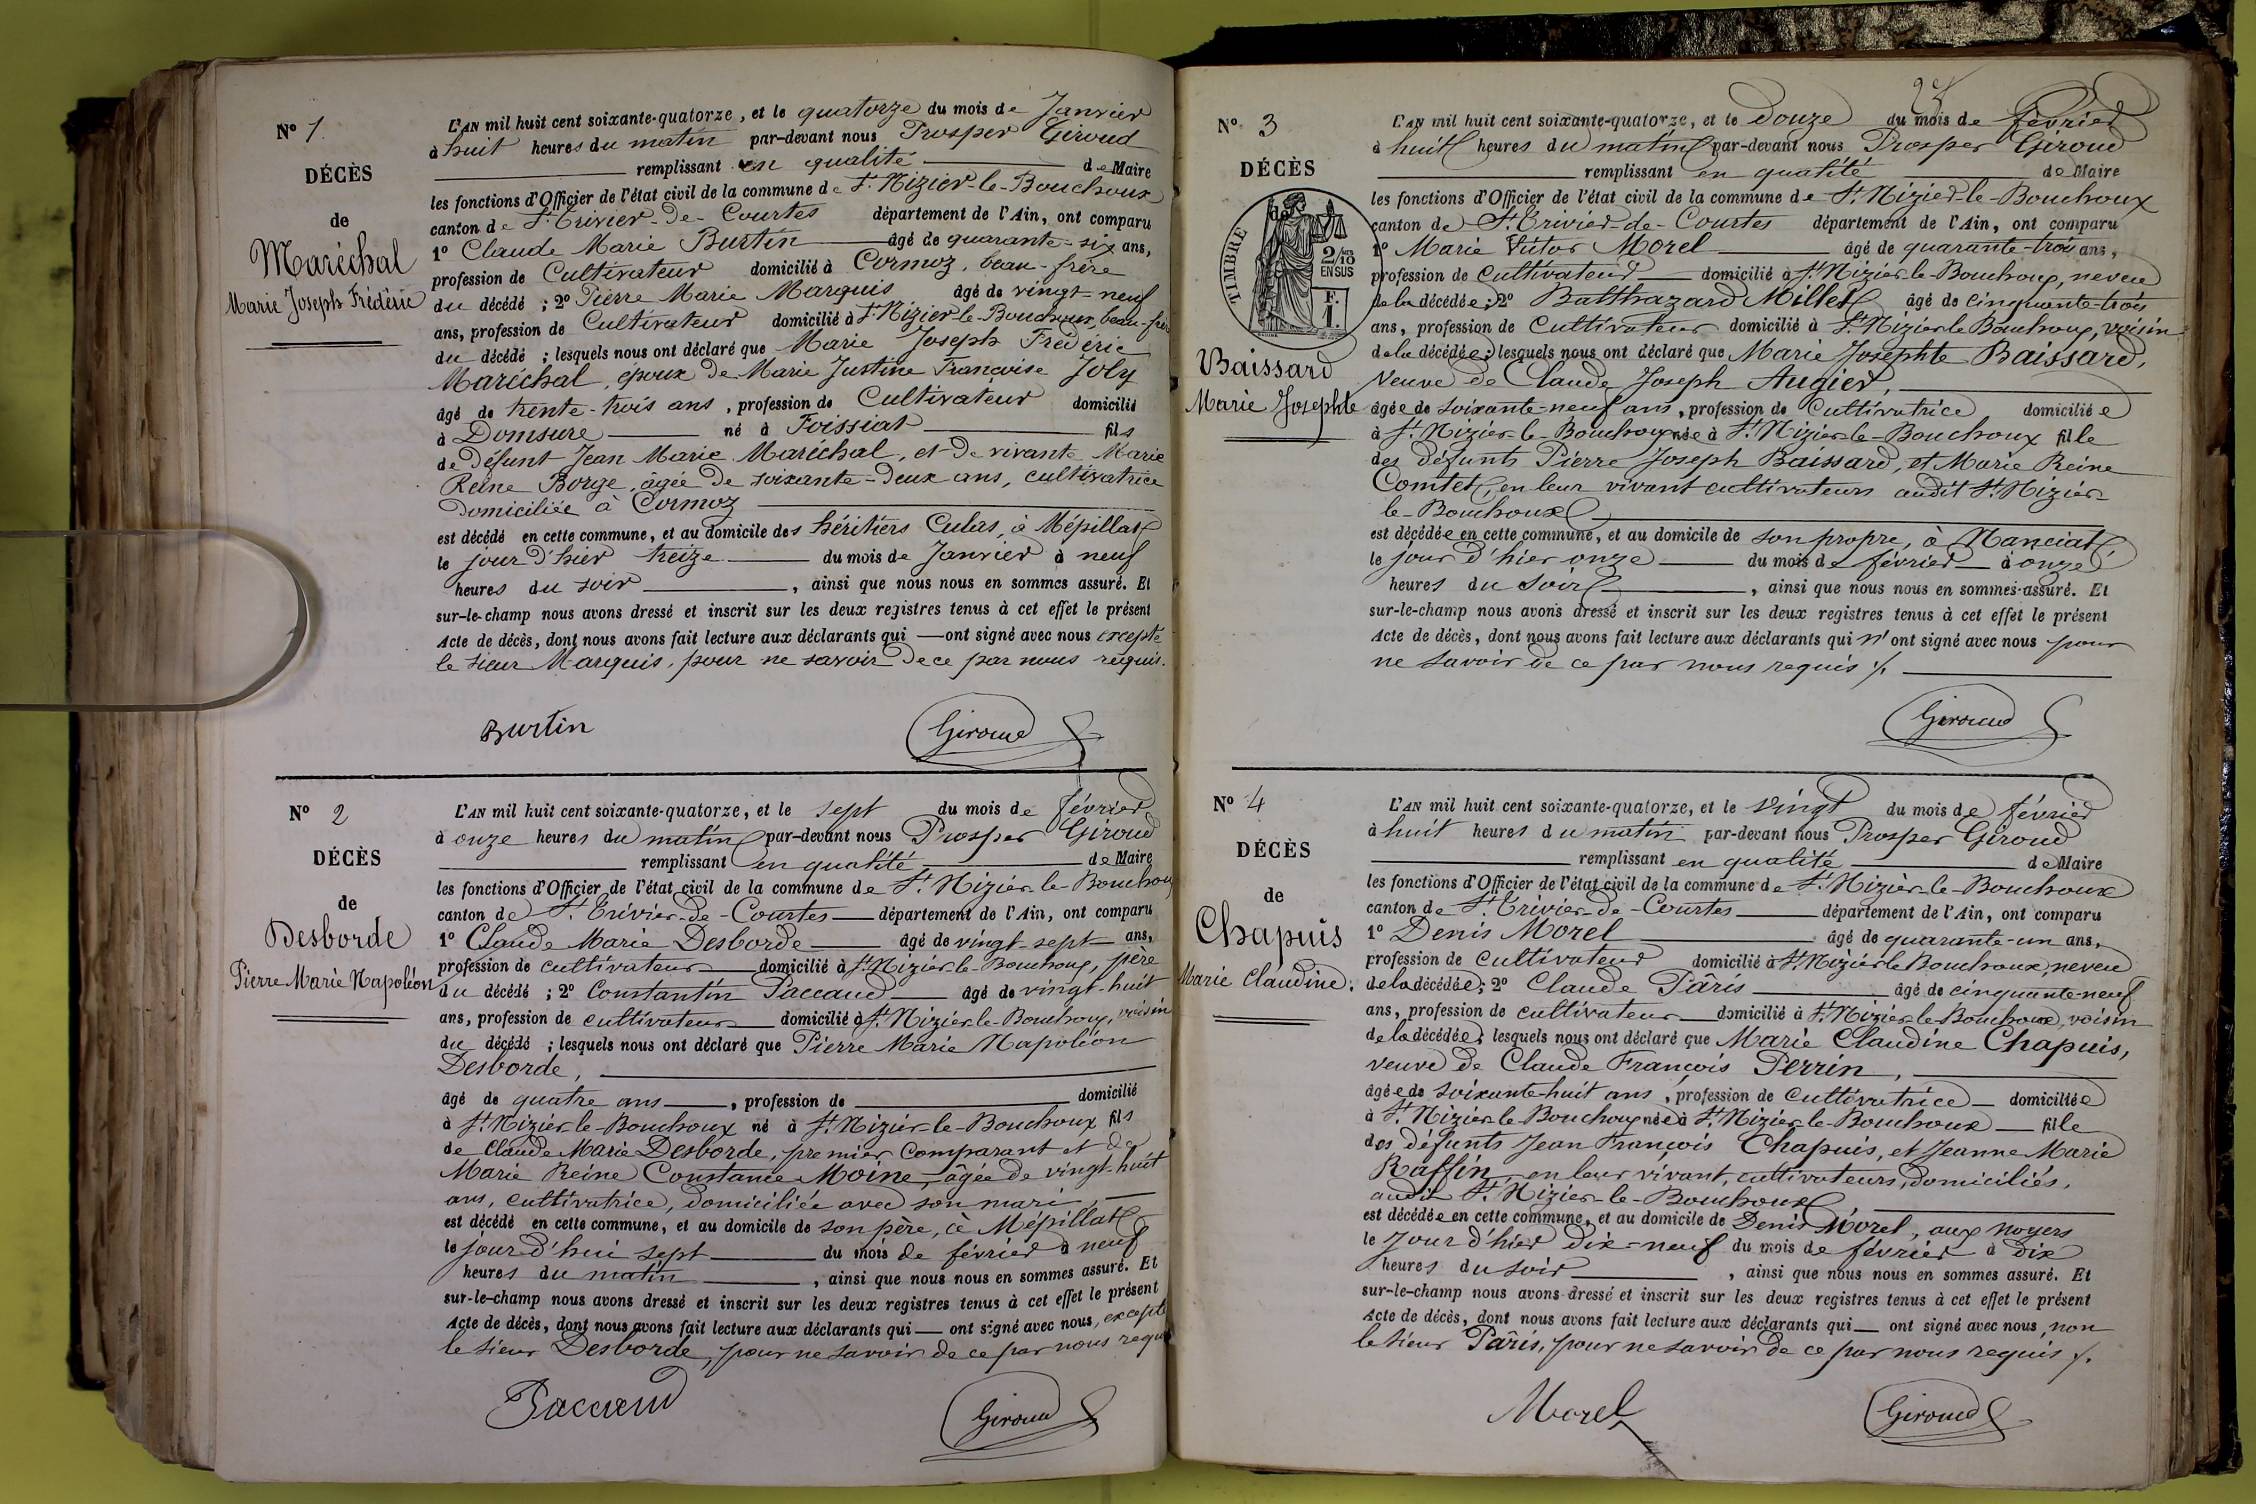 N° 1
DÉCÈS
de
Maréchal
Marie Joseph Frédéric
L'AN mil huit cent soixante-quatorze, et le quatorze du mois de Janvier
à huit heures du matin par-devant nous Prosper Giroud
remplissant en qualité de Maire
les fonctions d'Officier de l'état civil de la commune de St Nizier-le-Bouchoux
canton de St Trivier-de-Courtes département de l'Ain, ont comparu
1° Claude Marie Burtin âgé de quarante-six ans,
profession de Cultivateur domicilié à Cormoz, beau-frère
du décédé ; 2° Pierre Marie Marquis âgé de vingt-neuf
ans, profession de Cultivateur domicilié à St Nizier-le-Bouchoux, beau-frère
du décédé ; lesquels nous ont déclaré que Marie Joseph Frédéric
Maréchal, époux de Marie Justine Françoise Joly
âgé de trente-trois ans, profession de Cultivateur domicilié
à Domsure né à Foissiat fils
de défunt Jean Marie Maréchal, et de vivante Marie
Reine Borge, âgée de soixante-deux ans, cultivatrice
domiciliée à Cormoz
est décédé en cette commune, et au domicile des héritiers à Mépillat
le jour d'hier treize du mois de Janvier à neuf
heures du soir, ainsi que nous nous en sommes assuré. Et
sur-le-champ nous avons dressé et inscrit sur les deux registres tenus à cet effet le présent
Acte de décès, dont nous avons fait lecture aux déclarants qui — ont signé avec nous excepté
le sieur Marquis, pour ne savoir de ce par nous requis.
Burtin Giroud
N° 2
DÉCÈS
de
Desborde
Pierre Marie Napoléon
L'AN mil huit cent soixante-quatorze, et le sept du mois de février
à onze heures du matin par-devant nous Prosper Giroud
remplissant en qualité de Maire
les fonctions d'Officier de l'état civil de la commune de St Nizier-le-Bouchoux
canton de St Trivier-de-Courtes département de l'Ain, ont comparu
1° Claude Marie Desborde âgé de vingt-sept ans,
profession de cultivateur domicilié à St Nizier-le-Bouchoux, père
du décédé ; 2° Constantin Paccaud âgé de vingt-huit
ans, profession de cultivateur domicilié à St Nizier-le-Bouchoux, voisin
du décédé ; lesquels nous ont déclaré que Pierre Marie Napoléon
Desborde,
âgé de quatre ans, profession de domicilié
à St Nizier-le-Bouchoux né à St Nizier-le-Bouchoux fils
de Claude Marie Desborde, premier comparant et de
Marie Reine Constance Moine, âgée de vingt-huit
ans, cultivatrice, domiciliée avec son mari,
est décédé en cette commune, et au domicile de son père, à Mépillat
le jour d'hui sept du mois de février à neuf
heures du matin, ainsi que nous nous en sommes assuré. Et
sur-le-champ nous avons dressé et inscrit sur les deux registres tenus à cet effet le présent
Acte de décès, dont nous avons fait lecture aux déclarants qui — ont signé avec nous, excepté
le sieur Desborde, pour ne savoir de ce par nous requis
Paccaud Giroud
N° 3
DÉCÈS
de
TIMBRE
2/10
EN SUS
F.
1.
Baissard
Marie Josephte
L'AN mil huit cent soixante-quatorze, et le douze du mois de février
à huit heures du matin par-devant nous Prosper Giroud
remplissant en qualité de Maire
les fonctions d'Officier de l'état civil de la commune de St Nizier-le-Bouchoux
canton de St Trivier-de-Courtes département de l'Ain, ont comparu
1° Marie Victor Morel âgé de quarante-trois ans,
profession de cultivateur domicilié à St Nizier-le-Bouchoux, neveu
de la décédée ; 2° Balthazard Millet âgé de cinquante-trois
ans, profession de cultivateur domicilié à St Nizier le Bouchoux, voisin
de la décédée ; lesquels nous ont déclaré que Marie Josephte Baissard,
Veuve de Claude Joseph Augier,
âgée de soixante-neuf ans, profession de Cultivatrice domiciliée
à St Nizier-le-Bouchoux née à St Nizier-le-Bouchoux fille
des défunts Pierre Joseph Baissard, et Marie Reine
Comtet, en leur vivant cultivateurs audit St Nizier-
le-Bouchoux
est décédée en cette commune, et au domicile de son propre, à Nanciat,
le jour d'hier onze du mois de février à onze
heures du soir, ainsi que nous nous en sommes assuré. Et
sur-le-champ nous avons dressé et inscrit sur les deux registres tenus à cet effet le présent
Acte de décès, dont nous avons fait lecture aux déclarants qui n'ont signé avec nous pour
ne savoir de ce par nous requis /.
Giroud
N° 4
DÉCÈS
de
Chapuis
Marie Claudine.
L'AN mil huit cent soixante-quatorze, et le vingt du mois de février
à huit heures du matin par-devant nous Prosper Giroud
remplissant en qualité de Maire
les fonctions d'Officier de l'état civil de la commune de St Nizier-le-Bouchoux
canton de St Trivier-de-Courtes département de l'Ain, ont comparu
1° Denis Morel âgé de quarante-un ans,
profession de cultivateur domicilié à St Nizier le Bouchoux, neveu
de la décédée ; 2° Claude Pâris âgé de cinquante-neuf
ans, profession de cultivateur domicilié à St Nizier-le-Bouchoux, voisin
de la décédée ; lesquels nous ont déclaré que Marie Claudine Chapuis,
veuve de Claude François Perrin,
âgée de soixante-huit ans, profession de cultivatrice domiciliée
à St Nizier le Bouchoux née à St Nizier-le-Bouchoux fille
des défunts Jean François Chapuis, et Jeanne Marie
Raffin, en leur vivant, cultivateurs, domiciliés,
audit St Nizier-le-Bouchoux
est décédée en cette commune, et au domicile de Denis Morel, aux noyers
le jour d'hier dix-neuf du mois de février à dix
heures du soir, ainsi que nous nous en sommes assuré. Et
sur-le-champ nous avons dressé et inscrit sur les deux registres tenus à cet effet le présent
Acte de décès, dont nous avons fait lecture aux déclarants qui — ont signé avec nous, non
le sieur Pâris, pour ne savoir de ce par nous requis /.
Morel Giroud